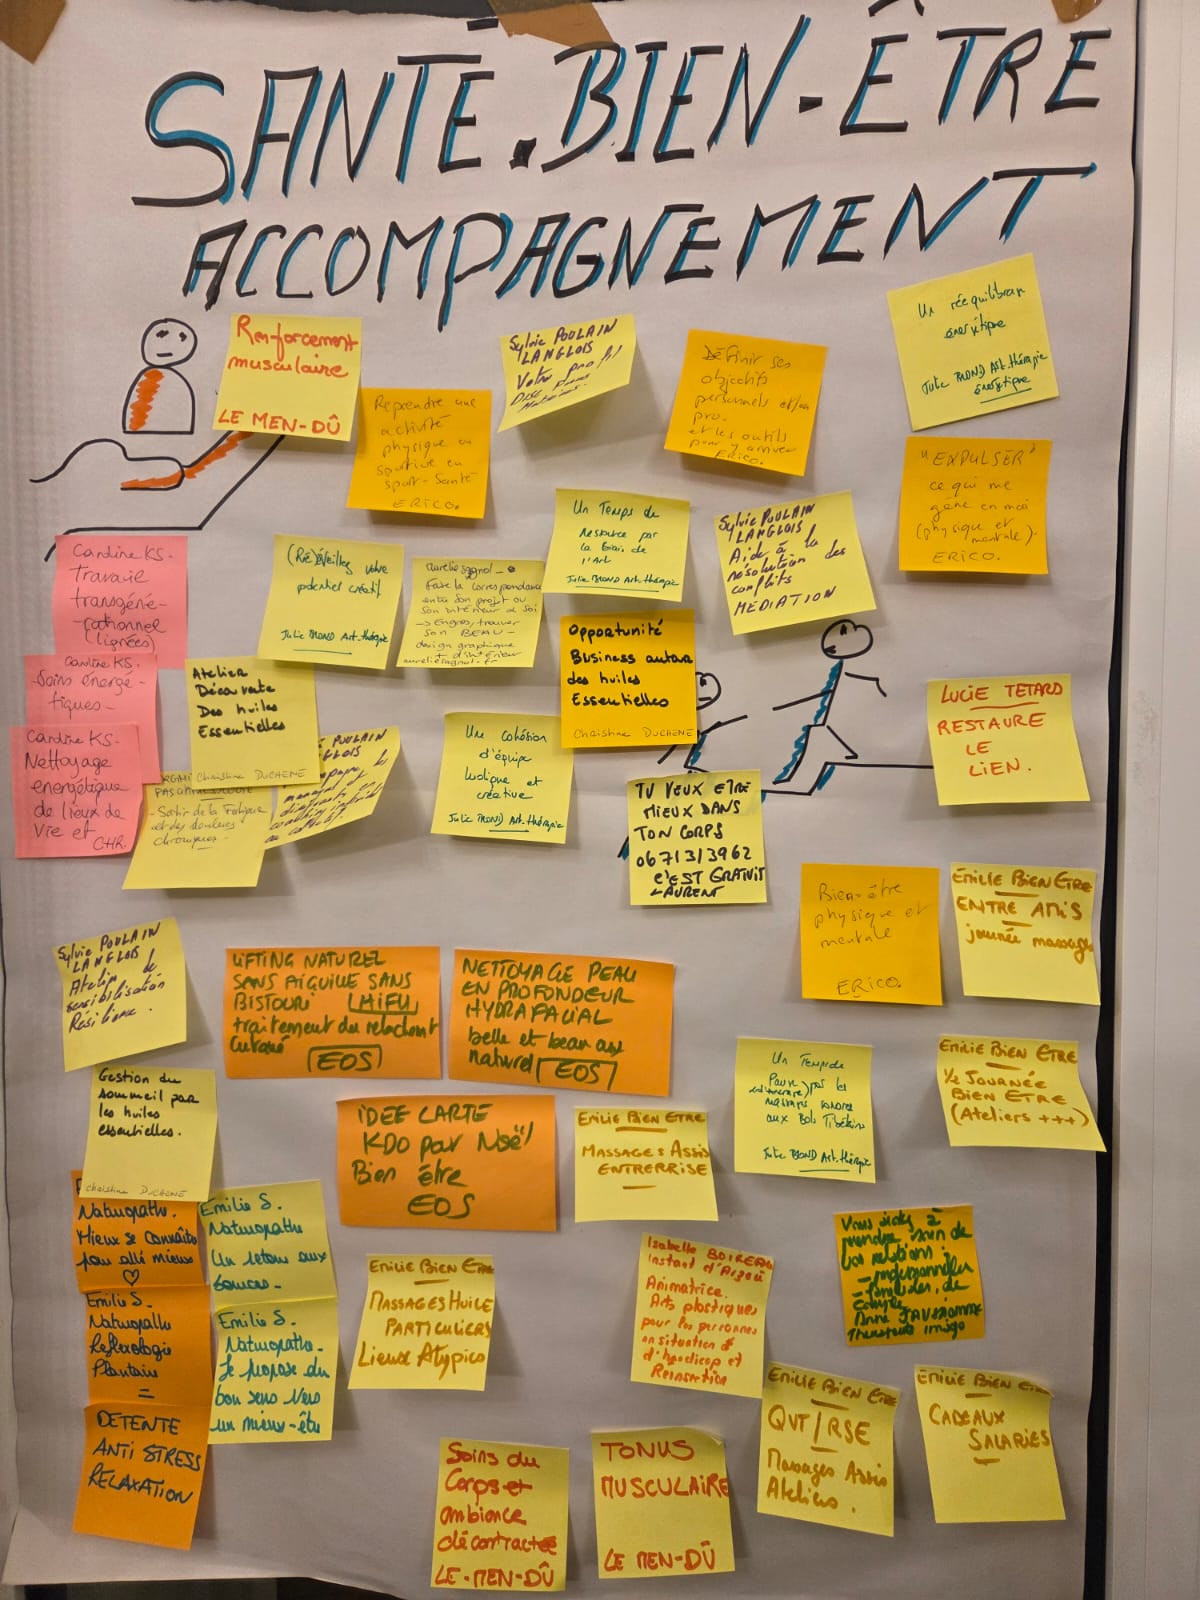 SANTÉ. BIEN-ÊTRE
ACCOMPAGNEMENT
Renforcement
musculaire
LE MEN-DÛ
Reprendre une
activité
physique ou
sportive en
sport-Santé
ERICO.
Sylvie POULAIN
LANGLOIS
Votre profil
DISC
Définir ses
objectifs
personnels et/ou
pro.
et les outils
pour y arriver
ERICO.
Un rééquilibrage
énergétique
Julie BLOND Art-thérapie
énergétique
"EXPULSER"
ce qui me
gêne en moi
(physique et
mentale).
ERICO.
Candine KS.
Travail
transgéné-
-rationnel
(lignées)
(Ré)Éveillez votre
potentiel créatif
Julie BLOND Art-thérapie
aureliesagnol
Faire la correspondance
entre son projet ou
son intérieur et soi
son BEAU
design graphique
+ d'intérieur
aureliesagnol.fr
Un Temps de
Ressource par
le biais de
l'Art
Julie BLOND Art-thérapie
Sylvie POULAIN
LANGLOIS
Aide à la
résolution des
conflits
MÉDIATION
Opportunité
Business autour
des huiles
Essentielles
Christine DUCHENE
Candine KS.
-Soins énergé-
tiques-
Candine KS-
Nettoyage
énergétique
de lieux de
vie et CHR.
Atelier
Découverte
Des huiles
Essentielles
Christine DUCHENE
-Sortir de la fatigue
et des douleurs
chroniques-
POULAIN
Une cohésion
d'équipe
ludique et
créative
Julie BLOND Art-thérapie
LUCIE TETARD
RESTAURE
LE
LIEN.
TU VEUX ETRE
MIEUX DANS
TON CORPS
0671313962
C'EST GRATUIT
LAURENT
Bien-être
physique et
mentale
ERICO.
ÉMILIE BIEN ETRE
ENTRE AMIS
journée massages
Sylvie POULAIN
LANGLOIS
Atelier de
sensibilisation
Résilience.
LIFTING NATUREL
SANS AIGUILLE SANS
BISTOURI LHIFU
traitement du relachment
cutané
EOS
NETTOYAGE PEAU
EN PROFONDEUR
HYDRAFACIAL
belle et beau au
naturel EOS
Gestion du
sommeil par
les huiles
essentielles.
Christine DUCHENE
IDEE CARTE
KDO pour Noël!
Bien être
EOS
EMILIE BIEN ETRE
MASSAGES ASSIS
ENTREPRISE
Un Temps de
Pause
massages sonores
aux Bols Tibétains
Julie BLOND Art-thérapie
EMILIE BIEN ETRE
1/2 JOURNÉE
BIEN ETRE
(Ateliers +++)
Naturopathe.
Mieux se connaître
pour allé mieux
Emilie S.
Naturopathe
Un retour aux
sources-
Emilie S.
Naturopathe
Réflexologie
Plantaire
Emilie S.
Naturopathe-
Je propose du
bon sens vers
un mieux-être
DETENTE
ANTI STRESS
RELAXATION
EMILIE BIEN ETRE
MASSAGES HUILE
PARTICULIERS
Lieux Atypico
Isabelle BOIREAU
instant d'
Animatrice
Arts plastiques
pour les personnes
en situation de
d'handicap et
Reinsertion
prendre soin de
vos relations:
-
- familiales, de
couple
Anne
Thérapeute imago
EMILIE BIEN ETRE
QVT/RSE
Massages Assis
Ateliers.
EMILIE BIEN ETRE
CADEAUX
SALARIÉS
Soins du
Corps et
ambiance
décontractée
LE-MEN-DÛ
TONUS
MUSCULAIRE
LE MEN-DÛ